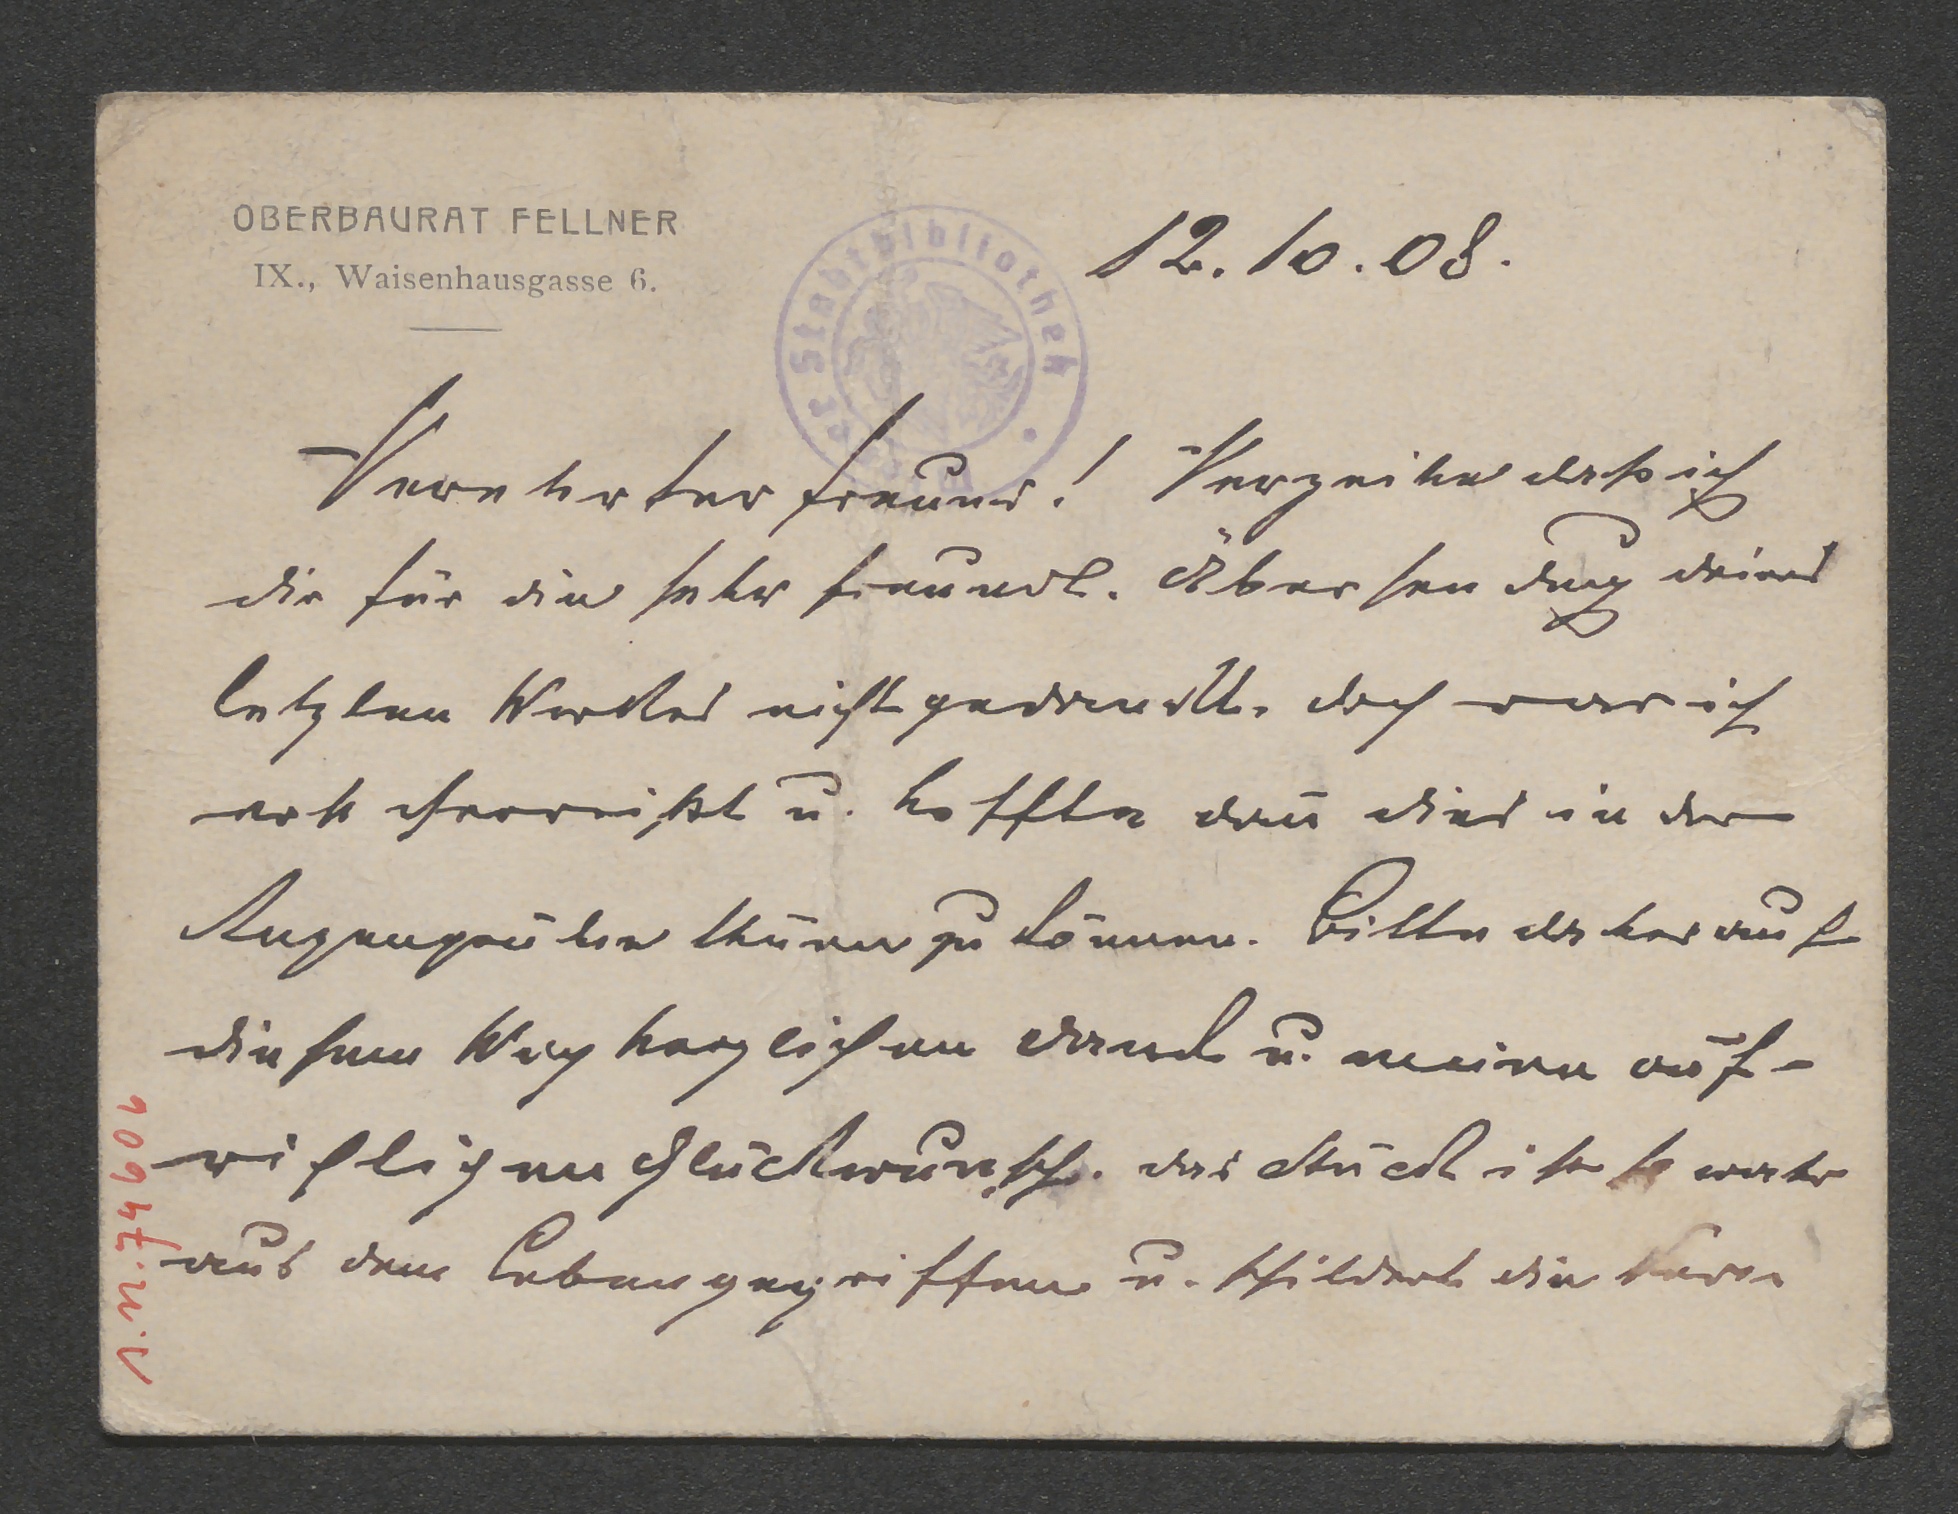 OBERBAURAT FELLNER
IX., Waisenhausgasse 6.
12.10.08.
Stadtbibliothek
Verehrter Freund! Verzeihe daß ich
dir für die sehr freundl. Übersendung deines
letzten Werkes nicht gedankt. doch war ich
erst verreist u. hoffte dan dies in der
thuen zu können. Bitte daher auf
diesem Weg herzlichen Dank u. meinen auf-
richtigen Glückwunsch. das Stück ist so wahr
aus dem Leben gegriffen u. schildert die
I.N. 74606